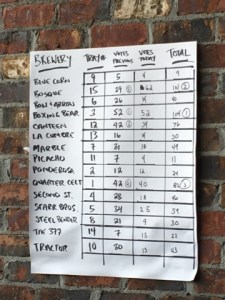 BREWERY TRAY# VOTES PREVIOUS VOTES TODAY TOTAL
BLUE CORN 9 5 4 9
BOSQUE 15 39 62 101 ②
BOW & ARROW 6 26
BOXING BEAR 3 52 52 104 ①
CANTEEN 12 42 34 76
LA CUMBRE 13 16 30
MARBLE 7 31 18 49
PICACHO 11 7 4 11
PONDEROSA 2 12 12 24
QUARTER CELT 1 42 40 82 ③
SECOND ST. 4 28
STARR BROS. 5 34 25 59
STEEL BENDER 8 21 9 30
THE 377 14 7
TRACTOR 10 30 13